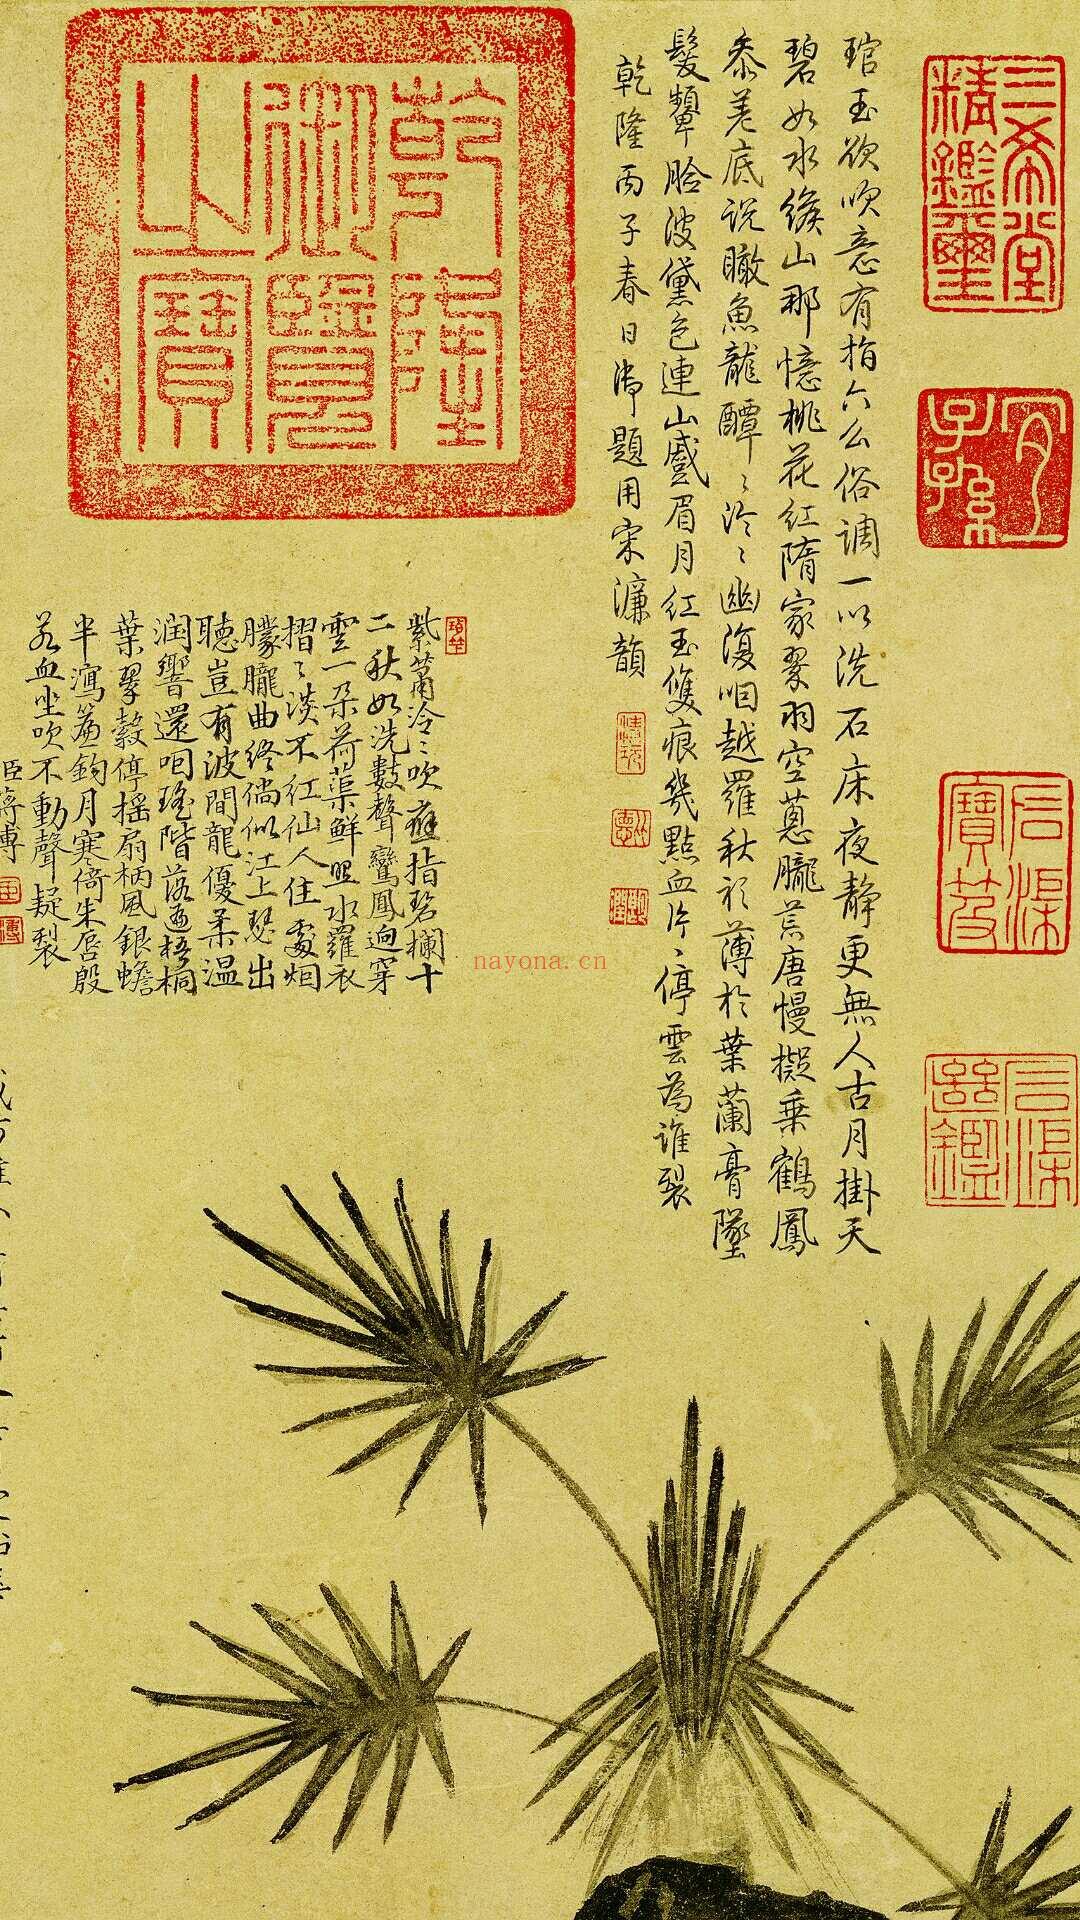 三希堂
精鑑璽
宜
子孫
石渠
寶笈
石渠
寶鑑
琯玉欲吹意有指六么俗調一以洗石床夜靜更無人古月掛天
碧如水緱山那憶桃花紅隋家翠羽空蔥朧荒唐慢擬乗鶴鳳
叅差底說瞰魚龍醰〻泠〻幽復咽越羅秋衫薄於葉蘭膏墜
髮顰脸波黛色連山蹙眉月紅玉雙痕幾點血片〻停雲為誰裂
乾隆丙子春日御題用宋濂韻
乾隆
御覽
之寶
紫簫泠〻吹
指碧欄十
二秋如洗數聲鸞鳳逈穿
雲一朵荷蕖鮮照水羅衣
摺〻淡不紅仙人住處烟
朦朧曲終倘似江上瑟出
聽豈有波間龍優柔温
潤響還咽瑤階落遍梧桐
葉翠縠停搖扇柄風銀蟾
半瀉簾鉤月寒倚朱唇殷
若血坐吹不動聲疑裂
臣蔣溥
nayona.cn